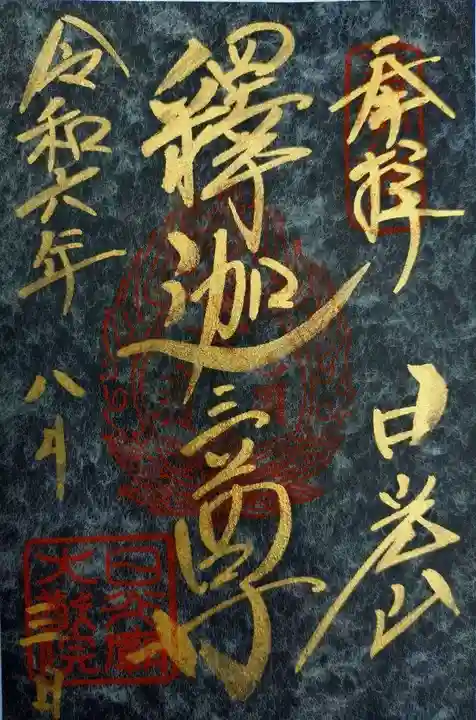 奉拝
日光山
釋迦三尊
令和六年
八月
三日
日光山
大猷院